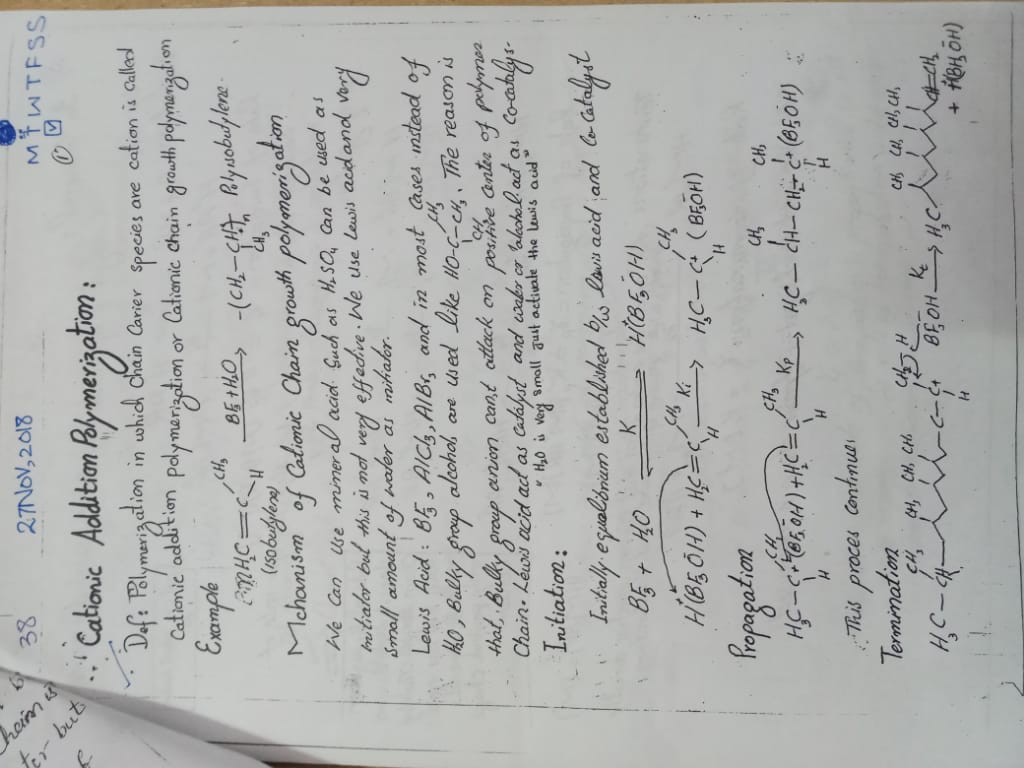 38 27 Nov, 2018 M T W T F S S
∴ Cationic Addition Polymerization:
Def: Polymerization in which chain Carier species are cation is called
Cationic addition polymerization or Cationic chain growth polymerization
Example
H₂C=C(CH₃)(H) BF₃+H₂O → -(CH₂-CH(CH₃))n Polyisobutylene.
(isobutylene)
Mechanism of Cationic Chain growth polymerization
We Can use mineral acid Such as H₂SO₄ Can be used as
initiator but this is not very effective. We use Lewis acid and very
small amount of water as initator.
Lewis Acid: BF₃, AlCl₃, AlBr₃ and in most Cases instead of
H₂O, Bulky group alcohols are used like HO-C(CH₃)(CH₃)-CH₃. The reason is
that, Bulky group anion can,t attack on positive center of polymer
Chain. Lewis acid act as catalyst and water or alcohol act as Co-catalys-
"H₂O is very small just activate the lewis acid"
Initiation:
Initialy equalibrium established b/w lewis acid and Co-Catalyst
BF₃ + H₂O K ⇌ H⁺(BF₃ŌH)
H⁺(BF₃ŌH) + H₂C=C(CH₃)(H) Ki → H₃C-C⁺(CH₃)(H) (BF₃ŌH)
Propagation
H₃C-C⁺(CH₃)(H)(BF₃ŌH) + H₂C=C(CH₃)(H) Kp → H₃C-CH(CH₃)-CH₂-C⁺(CH₃)(H)(BF₃ŌH)
This proces continues
Termination
H₃C-CH CH₃ CH₃ CH₃ CH₃ C-C⁺ CH₂ H H BF₃OH⁻ Kt → H₃C CH₃ CH₃ CH₃ CH₃ =CH₂
+ H⁺(BF₃ŌH)